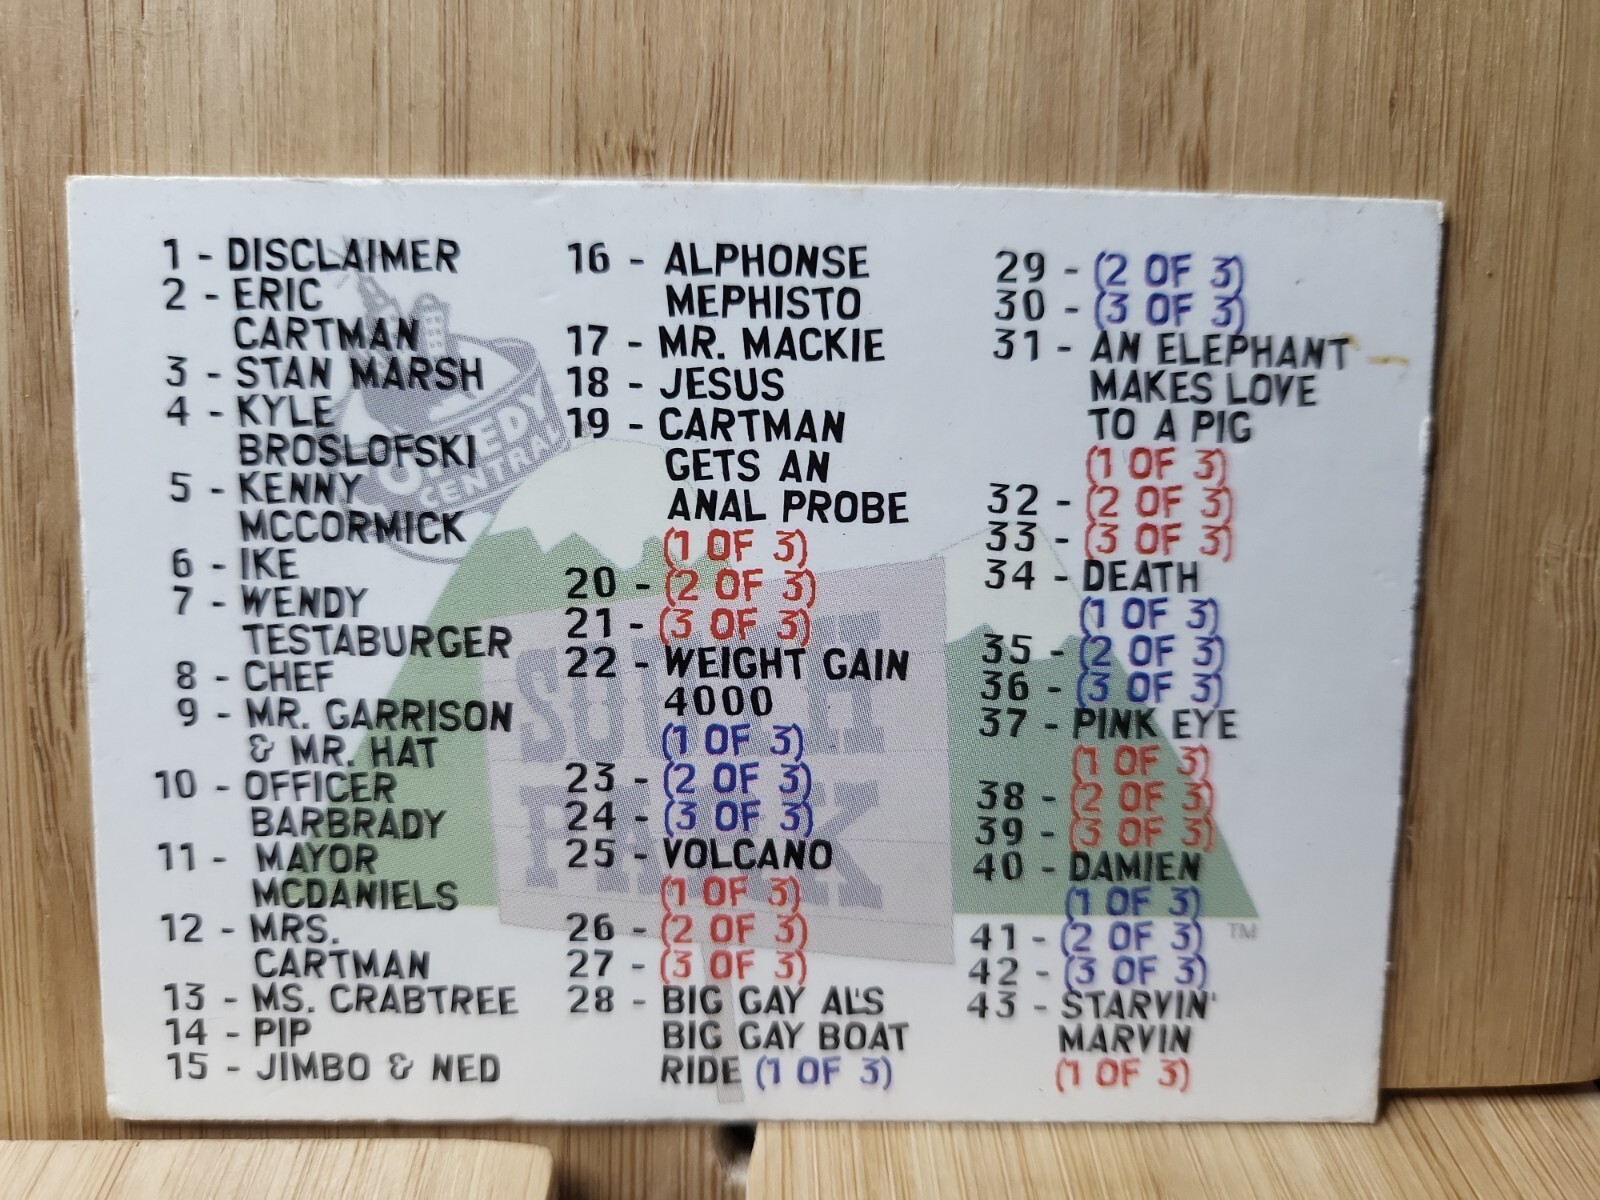 1 - DISCLAIMER
2 - ERIC
CARTMAN
3 - STAN MARSH
4 - KYLE
BROSLOFSKI
5 - KENNY
MCCORMICK
6 - IKE
7 - WENDY
TESTABURGER
8 - CHEF
9 - MR. GARRISON
& MR. HAT
10 - OFFICER
BARBRADY
11 - MAYOR
MCDANIELS
12 - MRS.
CARTMAN
13 - MS. CRABTREE
14 - PIP
15 - JIMBO & NED
16 - ALPHONSE
MEPHISTO
17 - MR. MACKIE
18 - JESUS
19 - CARTMAN
GETS AN
ANAL PROBE
(1 OF 3)
20 - (2 OF 3)
21 - (3 OF 3)
22 - WEIGHT GAIN
4000
(1 OF 3)
23 - (2 OF 3)
24 - (3 OF 3)
25 - VOLCANO
(1 OF 3)
26 - (2 OF 3)
27 - (3 OF 3)
28 - BIG GAY AL'S
BIG GAY BOAT
RIDE (1 OF 3)
29 - (2 OF 3)
30 - (3 OF 3)
31 - AN ELEPHANT
MAKES LOVE
TO A PIG
(1 OF 3)
32 - (2 OF 3)
33 - (3 OF 3)
34 - DEATH
(1 OF 3)
35 - (2 OF 3)
36 - (3 OF 3)
37 - PINK EYE
(1 OF 3)
38 - (2 OF 3)
39 - (3 OF 3)
40 - DAMIEN
(1 OF 3)
41 - (2 OF 3)
42 - (3 OF 3)
43 - STARVIN'
MARVIN
(1 OF 3)
COMEDY
CENTRAL
SOUTH
PARK
TM